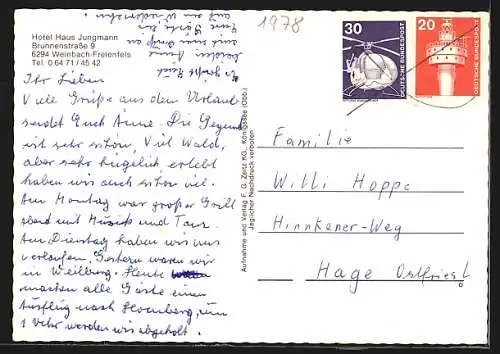 Hotel Haus Jungmann
Brunnenstraße 9
6294 Weinbach-Freienfels
Tel. 0 64 71 / 45 42
1978
30
DEUTSCHE BUNDESPOST
20
DEUTSCHE BUNDESPOST
Ihr Lieben
Viele Grüße aus dem Urlaub
sendet Euch Anne. Die Gegend
ist sehr schön, Viel Wald,
aber sehr hügelich, erlebt
haben wir auch schon viel.
Am Montag war großer Grill
abend mit Musik und Tanz.
Am Dienstag haben wir uns
verlaufen. Gestern waren wir
in Weilburg. Heute
machen alle Gäste einen
Ausflug nach, um
1 Uhr werden wir abgeholt.
Es grüßt Euch
Anne
auf Wiedersehn
Aufnahme und Verlag F. G. Zeitz KG., Königssee (Obb.)
Jeglicher Nachdruck verboten
Familie
Willi Hoppe
Hinnkaner-Weg
Hage Ostfriesl